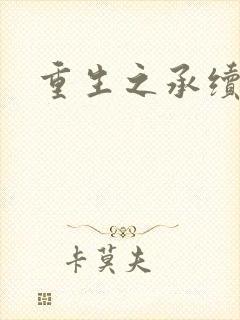 重生之承续
卡莫夫